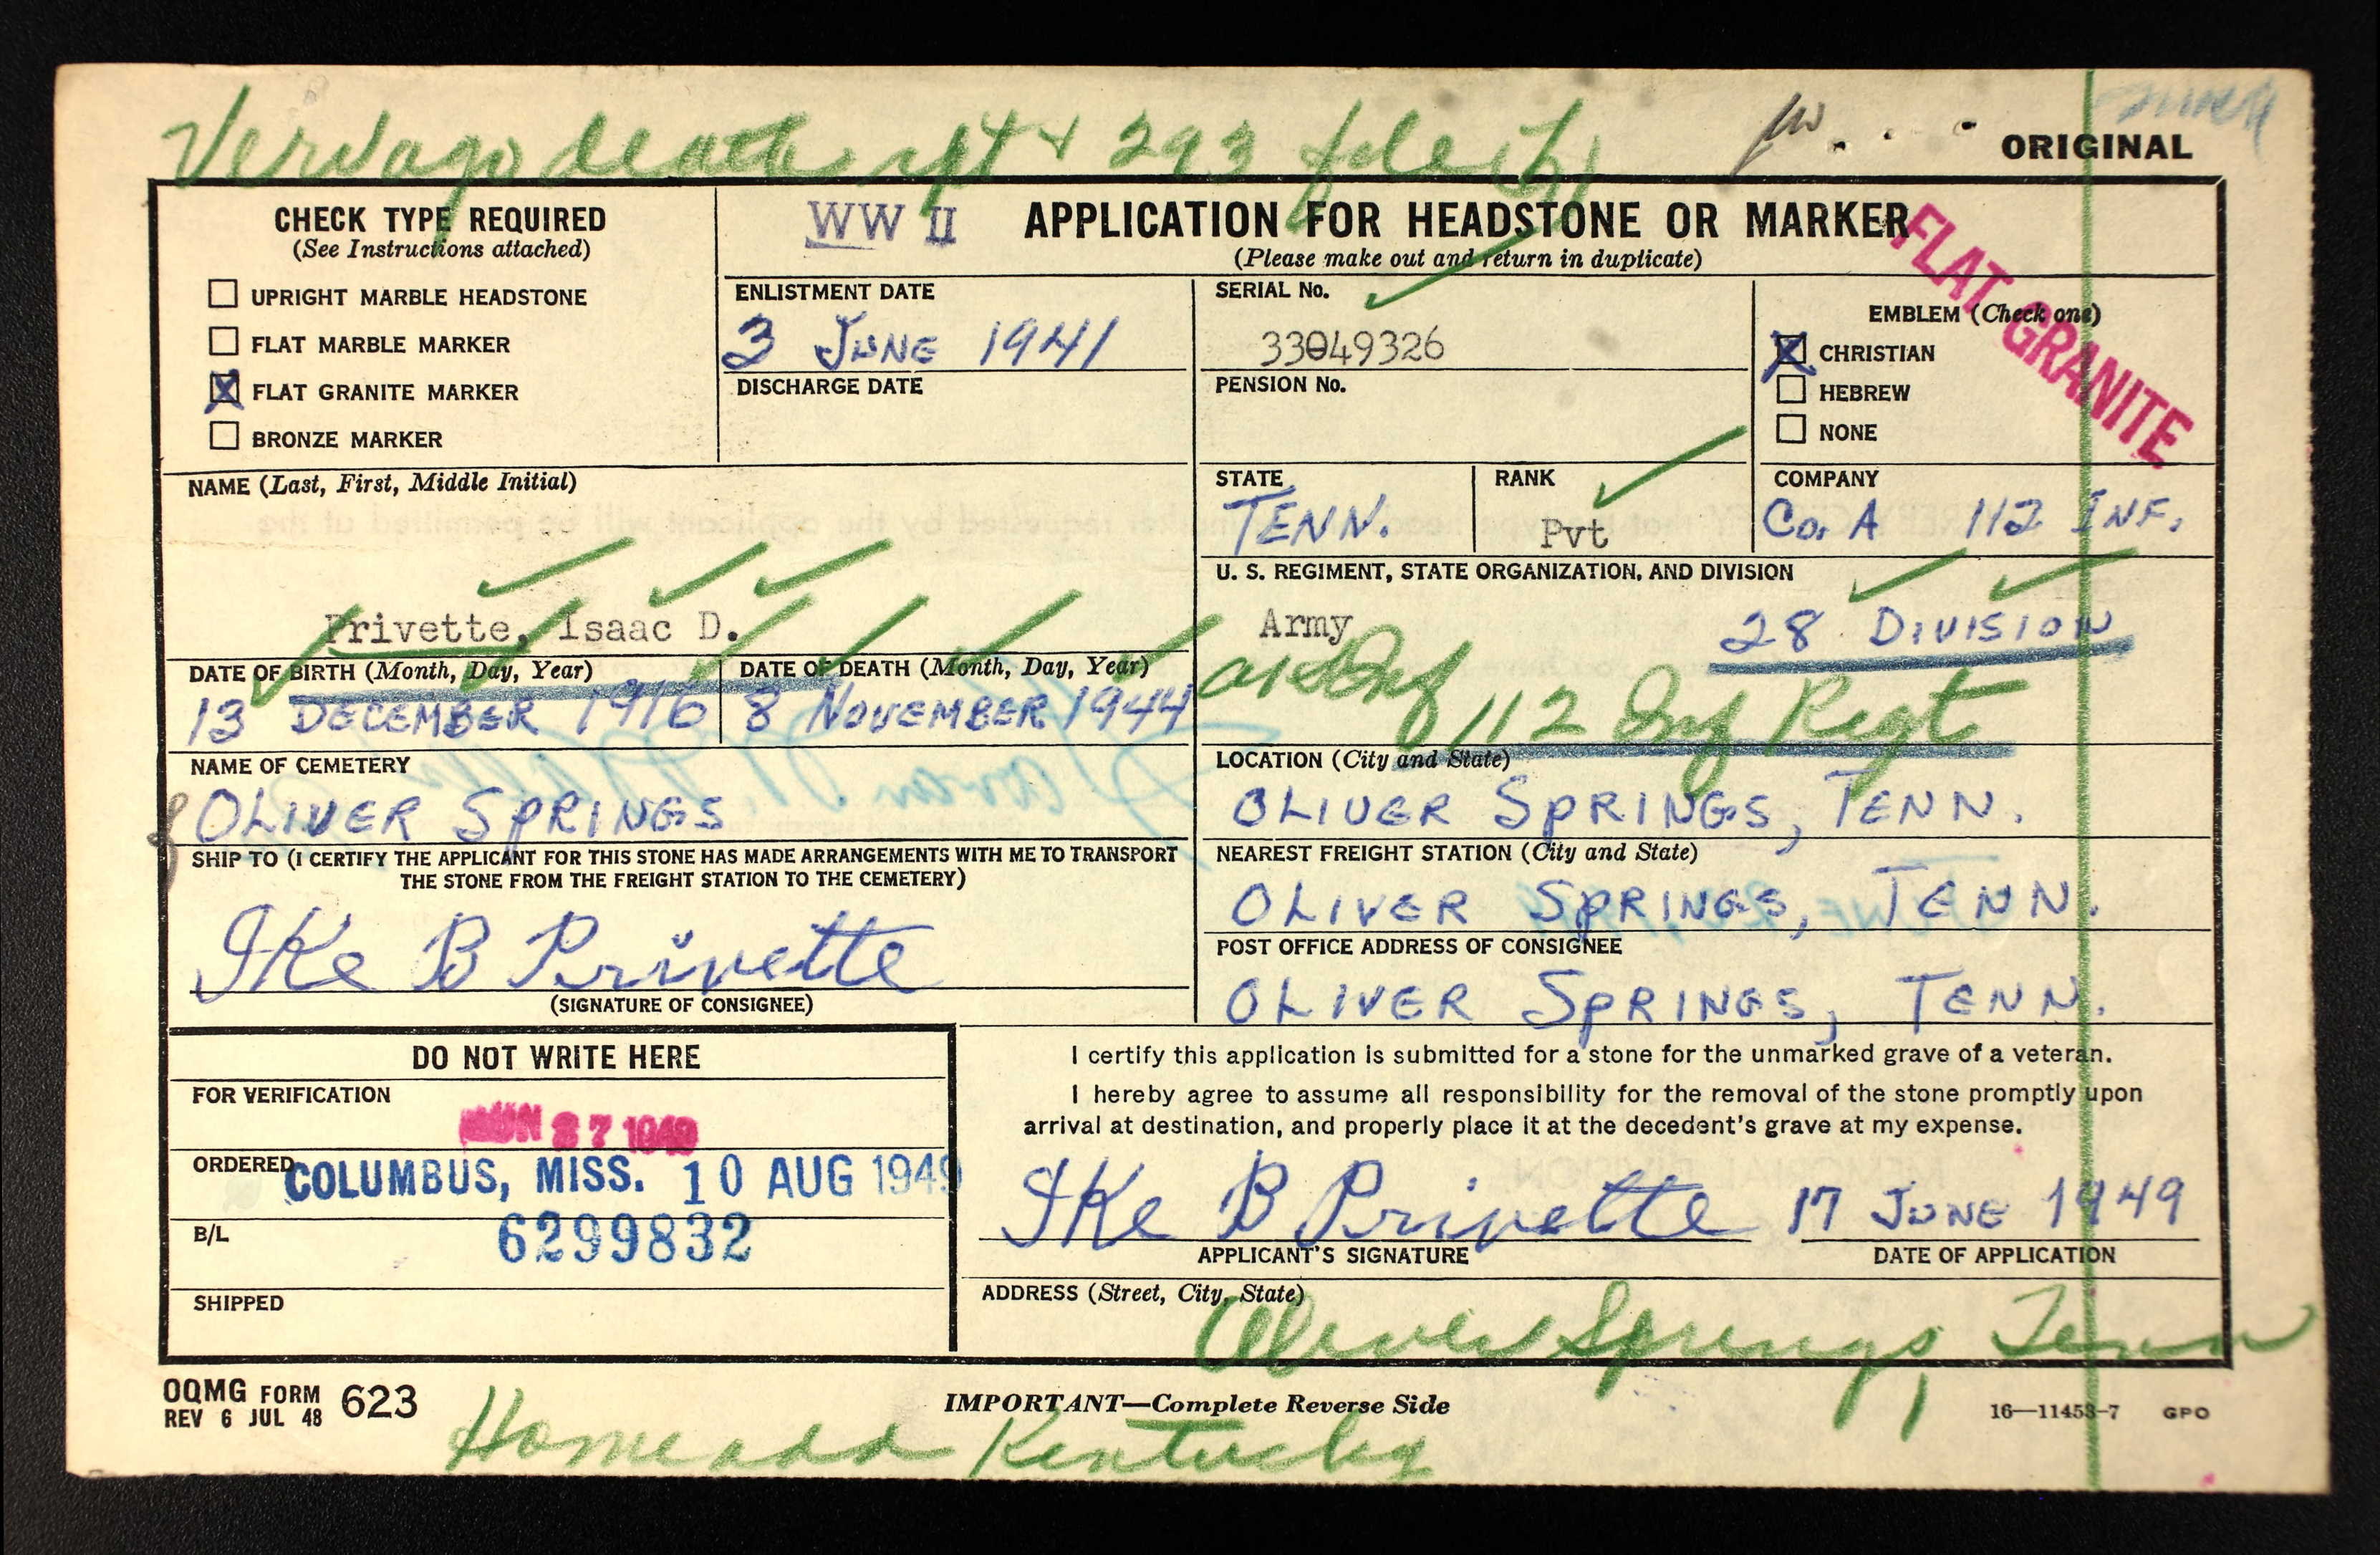 Ver Vago death rpt + 293 file
ORIGINAL
CHECK TYPE REQUIRED
(See Instructions attached)
UPRIGHT MARBLE HEADSTONE
FLAT MARBLE MARKER
X FLAT GRANITE MARKER
BRONZE MARKER
WW II APPLICATION FOR HEADSTONE OR MARKER
(Please make out and return in duplicate)
FLAT GRANITE
ENLISTMENT DATE
3 JUNE 1941
DISCHARGE DATE
SERIAL No.
33049326
PENSION No.
EMBLEM (Check one)
X CHRISTIAN
HEBREW
NONE
NAME (Last, First, Middle Initial)
Privette, Isaac D.
STATE
TENN.
RANK
Pvt
COMPANY
Co. A 112 INF.
U. S. REGIMENT, STATE ORGANIZATION, AND DIVISION
Army 28 DIVISION
112 Inf Regt
DATE OF BIRTH (Month, Day, Year)
13 DECEMBER 1916
DATE OF DEATH (Month, Day, Year)
8 NOVEMBER 1944
NAME OF CEMETERY
OLIVER SPRINGS
LOCATION (City and State)
OLIVER SPRINGS, TENN.
SHIP TO (I CERTIFY THE APPLICANT FOR THIS STONE HAS MADE ARRANGEMENTS WITH ME TO TRANSPORT
THE STONE FROM THE FREIGHT STATION TO THE CEMETERY)
IKe B Privette
(SIGNATURE OF CONSIGNEE)
NEAREST FREIGHT STATION (City and State)
OLIVER SPRINGS, TENN.
POST OFFICE ADDRESS OF CONSIGNEE
OLIVER SPRINGS, TENN.
DO NOT WRITE HERE
FOR VERIFICATION
JUN 27 1949
ORDERED COLUMBUS, MISS. 10 AUG 1949
B/L 6299832
SHIPPED
I certify this application is submitted for a stone for the unmarked grave of a veteran.
I hereby agree to assume all responsibility for the removal of the stone promptly upon
arrival at destination, and properly place it at the decedent's grave at my expense.
IKe B Privette 17 JUNE 1949
APPLICANT'S SIGNATURE DATE OF APPLICATION
ADDRESS (Street, City, State)
Oliver Springs, Tenn
OQMG FORM 623
REV 6 JUL 48
IMPORTANT—Complete Reverse Side
16—11453-7 GPO
Home add Kentucky